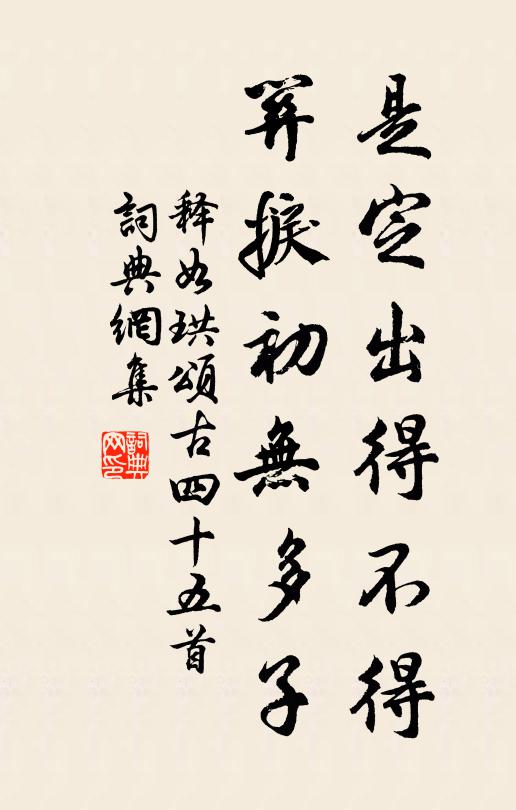 是定出得不得
笄捩初無多子
释如珙頌古四十五首
詞典網集
詞典
网印